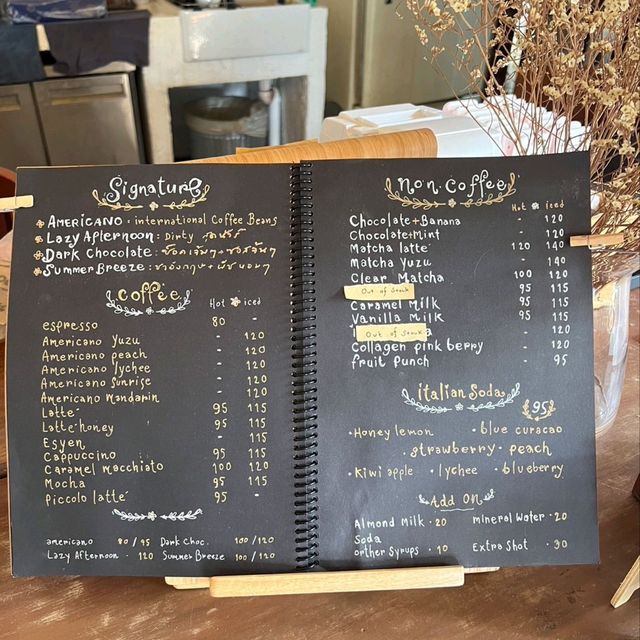 Signature
AMERICANO : international Coffee Beans
Lazy Afternoon : Dirty
Dark Chocolate :
Summer Breeze :
Coffee
Hot iced
espresso 80 -
Americano yuzu - 120
Americano peach - 120
Americano lychee - 120
Americano Sunrise - 120
Americano Mandarin - 120
Latte 95 115
Latte honey 95 115
Esyen - 115
Cappuccino 95 115
Caramel macchiato 100 120
Mocha 95 115
Piccolo latte 95 -
americano 80 / 95 Dark Choc. 100 / 120
Lazy Afternoon . 120 Summer Breeze 100 / 120
Non Coffee
Hot iced
Chocolate + Banana - 120
Chocolate + Mint - 120
Matcha latte 120 140
Matcha yuzu - 140
Clear Matcha 100 120
Out of Stock 95 115
Caramel Milk 95 115
Vanilla Milk 95 115
Out of Stock a - 120
Collagen pink berry - 120
fruit punch - 95
italian Soda 95
• Honey lemon • blue curacao
• strawberry • peach
• Kiwi apple • lychee • blueberry
Add On
Almond Milk • 20 mineral Water • 20
Soda
orther Syrups • 10 Extra Shot • 30